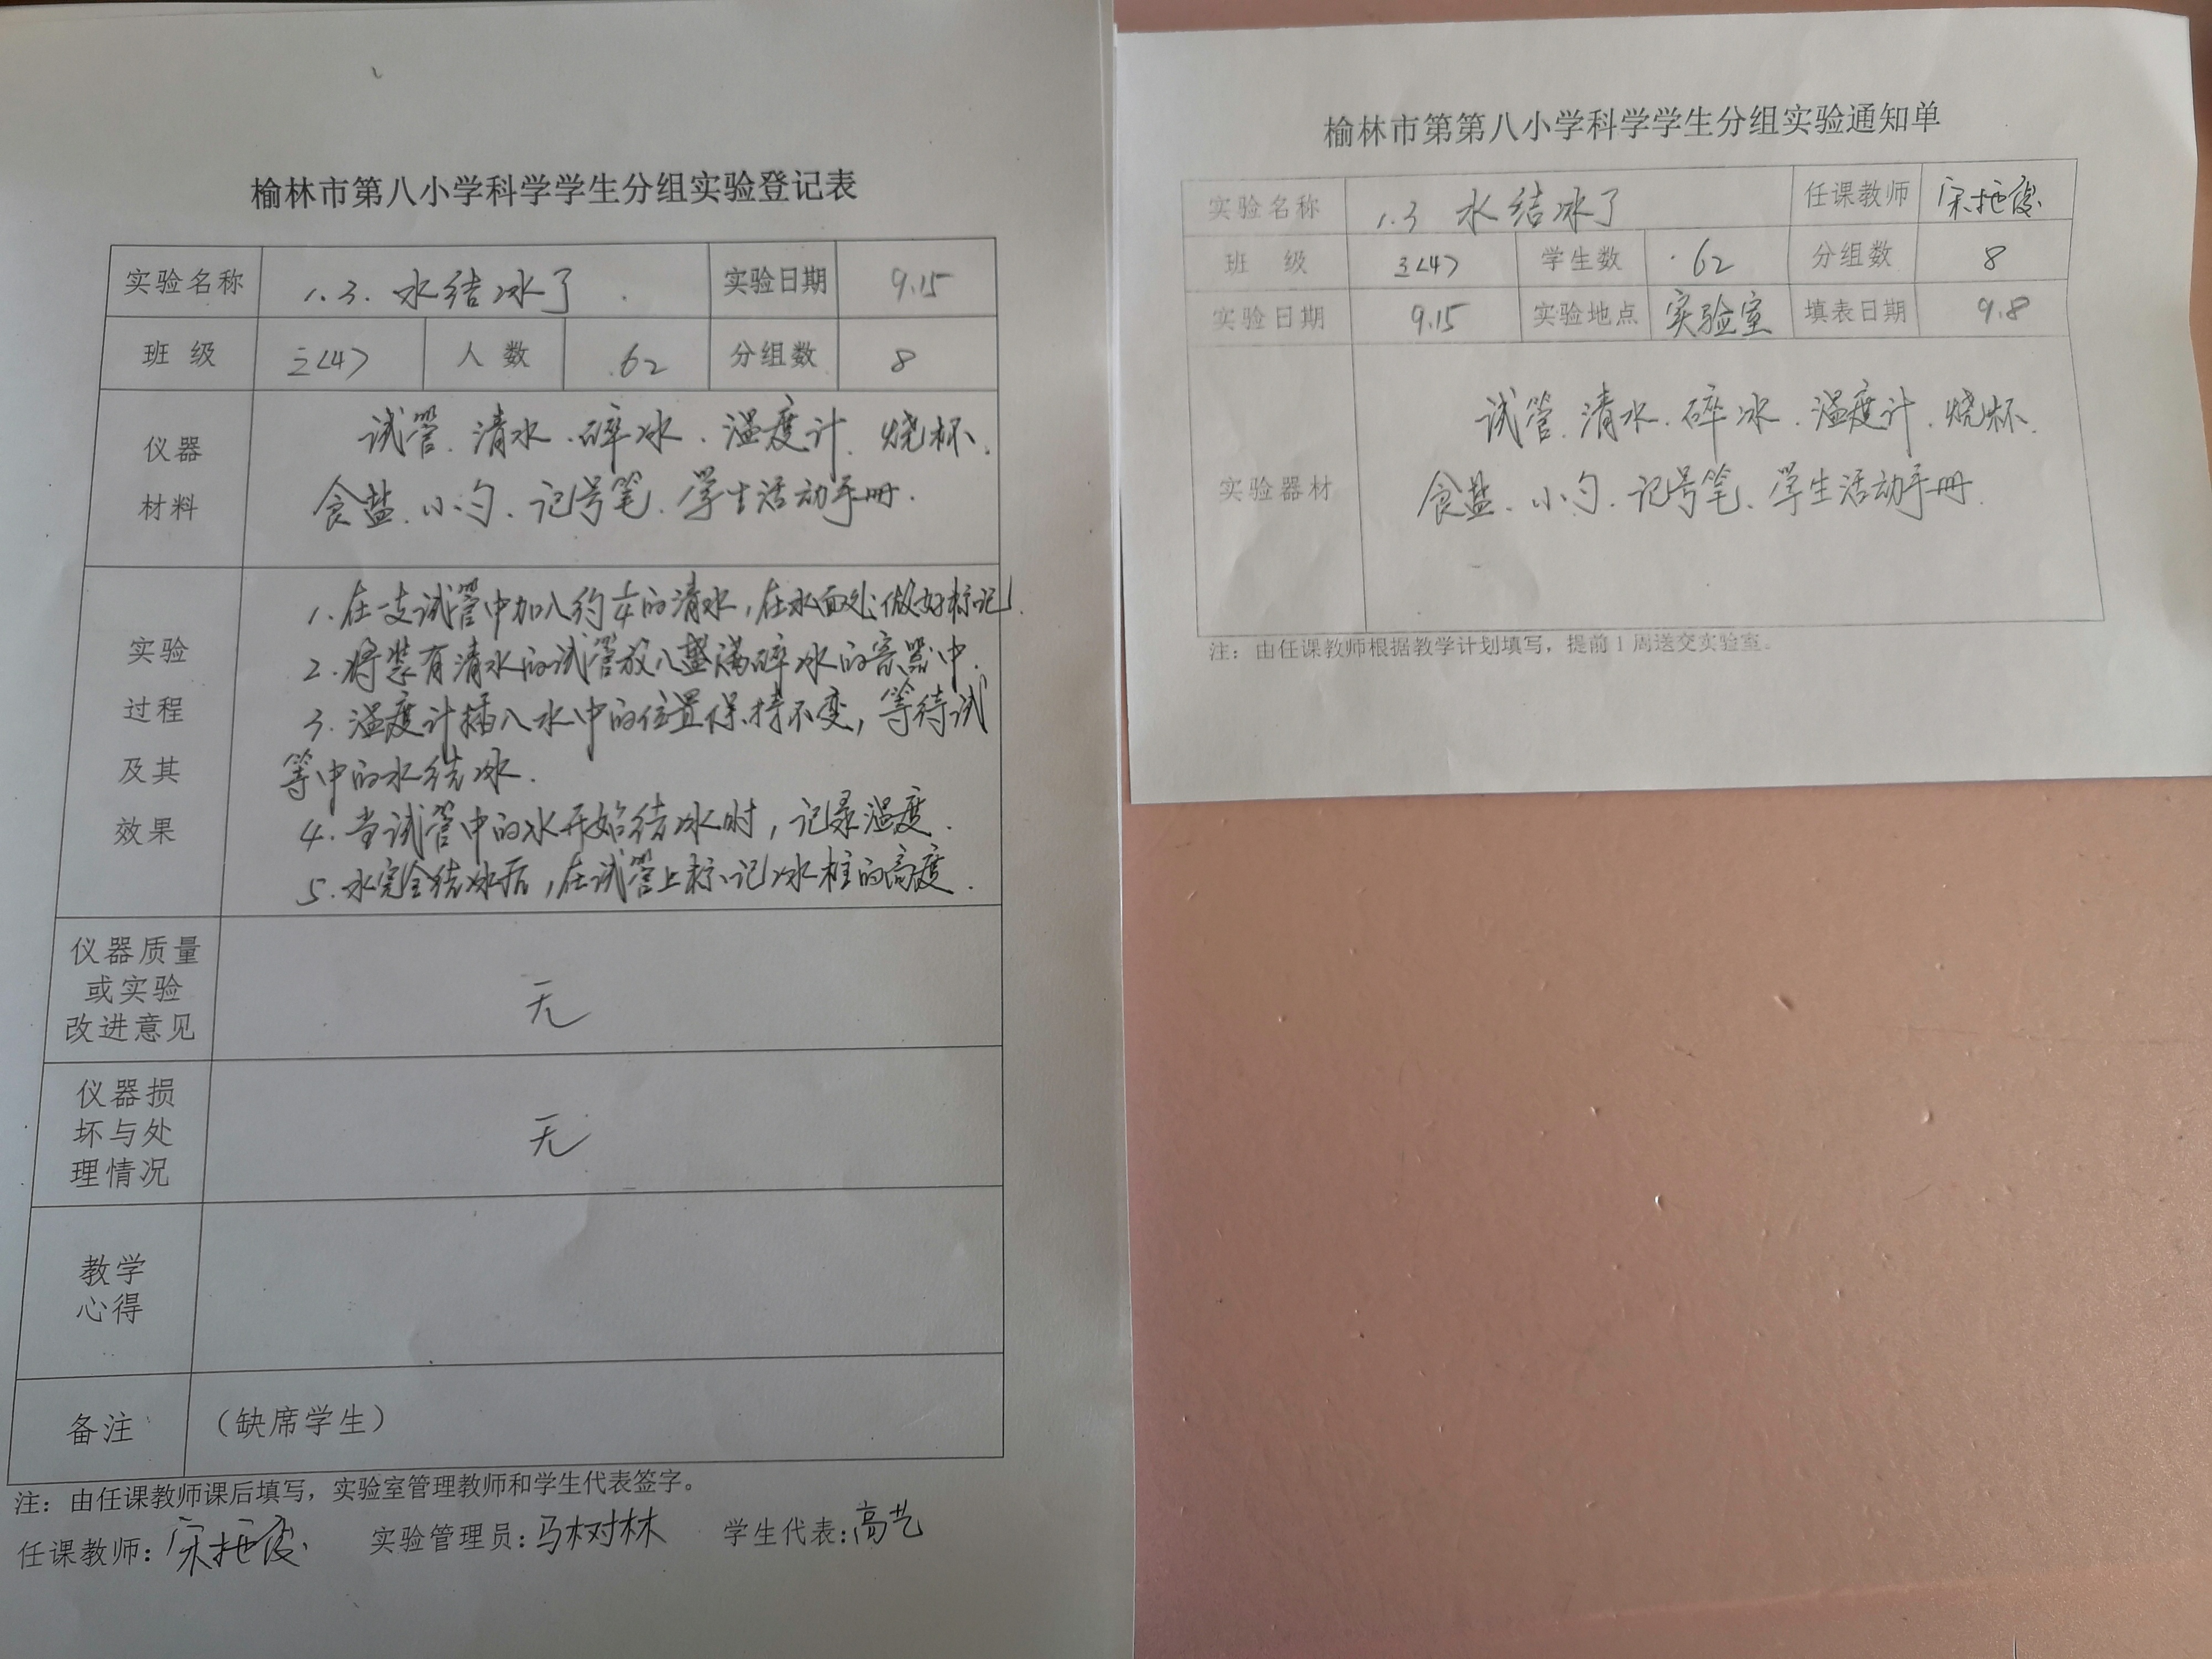 榆林市第八小学科学学生分组实验登记表
实验名称 1.3.水结冰了 实验日期 9.15
班级 三<4> 人数 62 分组数 8
仪器
材料
试管、清水、碎冰、温度计、烧杯、
食盐、小勺、记号笔、学生活动手册.
实验
过程
及其
效果
1.在一支试管中加入约 的清水,在水面处做好标记.
2.将装有清水的试管放入盛满碎冰的容器中.
3.温度计插入水中的位置保持不变,等待试
等中的水结冰.
4.当试管中的水开始结冰时,记录温度.
5.水完全结冰后,在试管上标记冰柱的高度.
仪器质量
或实验
改进意见
无
仪器损
坏与处
理情况
无
教学
心得
备注 (缺席学生)
注:由任课教师课后填写,实验室管理教师和学生代表签字。
任课教师: 实验管理员:马树林 学生代表:高艺
榆林市第第八小学科学学生分组实验通知单
实验名称 1.3 水结冰了 任课教师
班 级 三<4> 学生数 62 分组数 8
实验日期 9.15 实验地点 实验室 填表日期 9.8
实验器材
试管、清水、碎冰、温度计、烧杯、
食盐、小勺、记号笔、学生活动手册.
注:由任课教师根据教学计划填写,提前1周送交实验室。